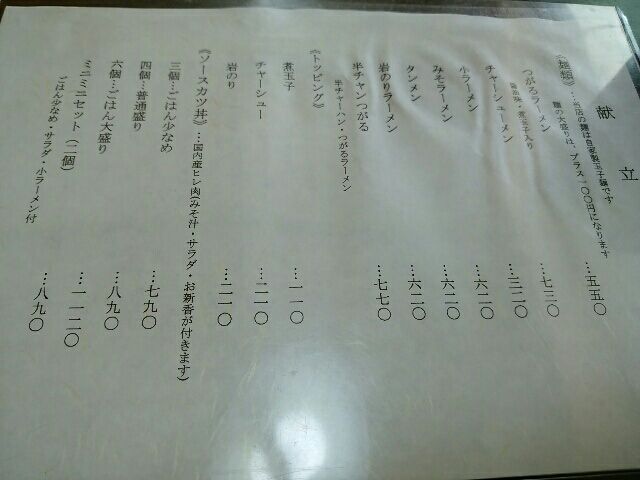 献立
《麺類》…当店の麺は自家製玉子麺です
麺の大盛りは、プラス一〇〇円になります
つがるラーメン …五五〇
・煮玉子入り
チャーシューメン …七三〇
小ラーメン …三二〇
みそラーメン …六二〇
タンメン …六二〇
岩のりラーメン …六二〇
半チャンつがる …七七〇
半チャーハン・つがるラーメン
《トッピング》
煮玉子 …一一〇
チャーシュー …二一〇
岩のり …二一〇
《ソースカツ丼》…国内産ヒレ肉(みそ汁・サラダ・お新香が付きます)
三個…ごはん少なめ …七九〇
四個…普通盛り …八九〇
六個…ごはん大盛り …一一二〇
ミニミニセット(二個) …八九〇
ごはん少なめ・サラダ・小ラーメン付